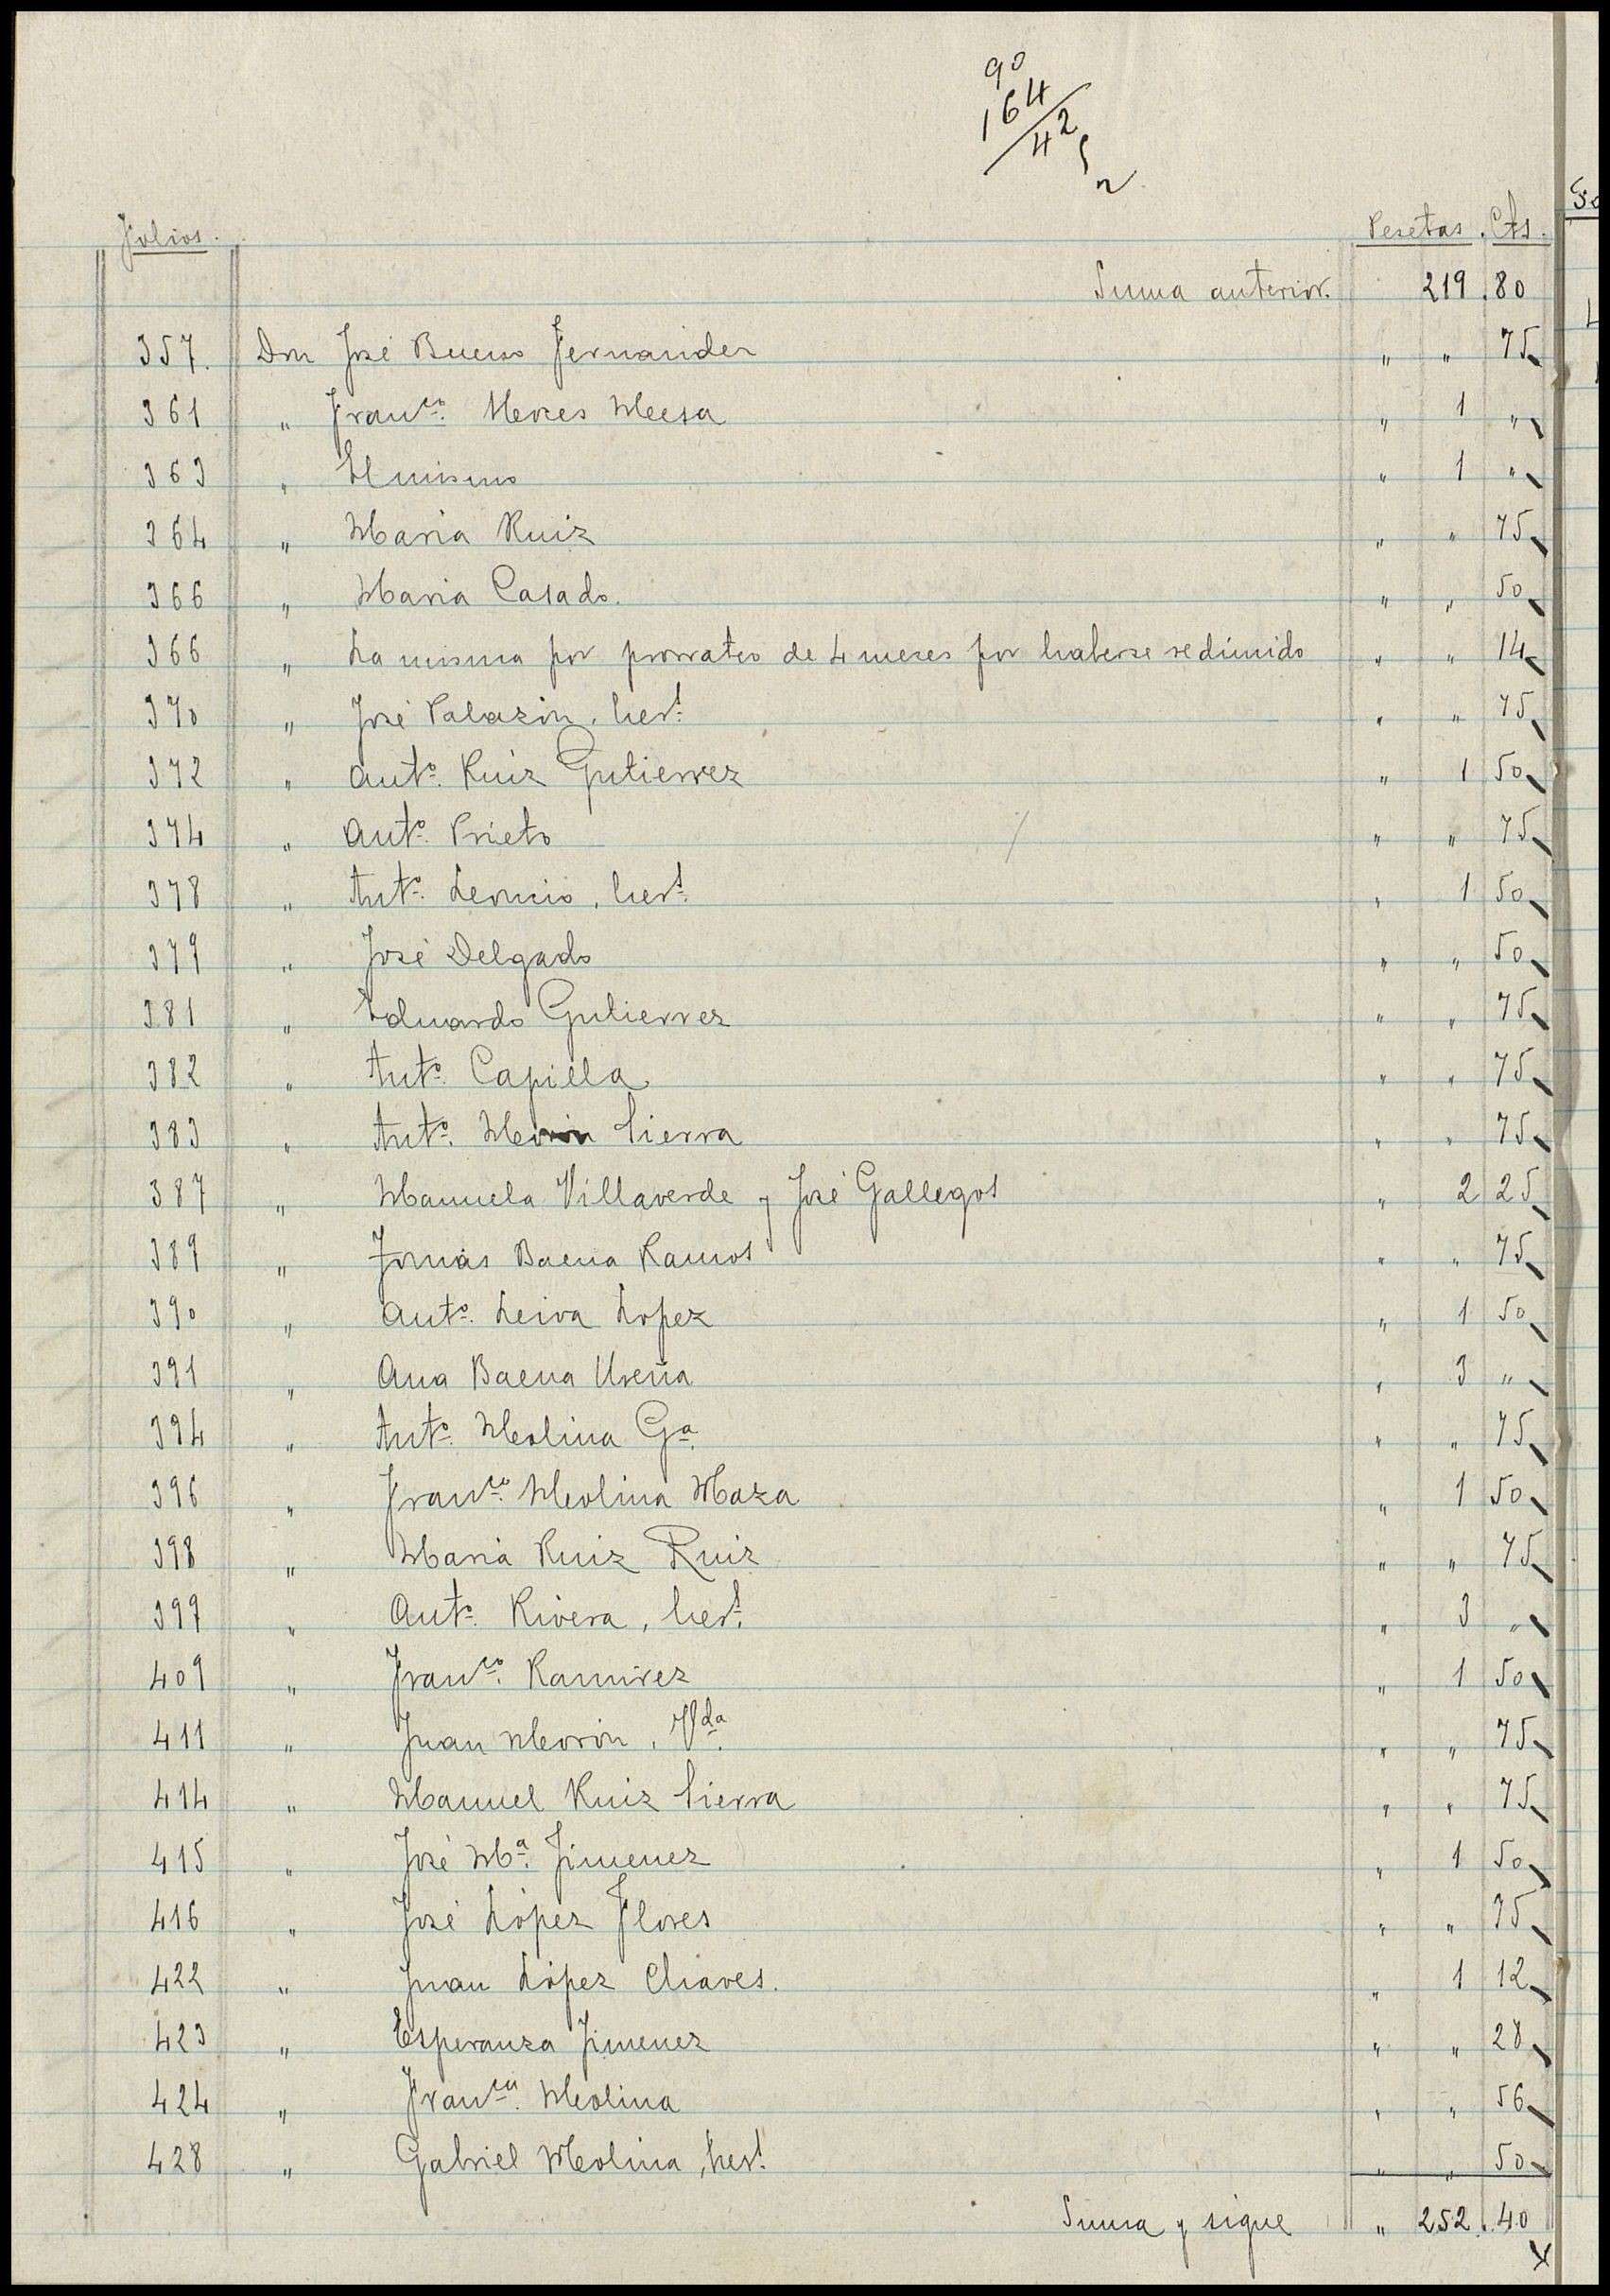 90
164
42
2
Folios.
Pesetas. Cts.
Suma anterior. 219.80
357. Don José Bueno Fernandez " " 75
361 " Franco. Flores Mesa " 1 "
363 " El mismo " 1 "
364 " Maria Ruiz " " 75
366 " Maria Casado. " " 50
366 " La misma por prorrateo de 4 meses por haberse redimido " " 14
370 " José Palazón, hers. " " 75
372 " Anto. Ruiz Gutierrez " 1 50
374 " Anto. Prieto " " 75
378 " Anto. Leoncio, hers. " 1 50
379 " José Delgado " " 50
381 " Eduardo Gutierrez " " 75
382 " Anto. Capilla " " 75
383 " Anto. Morón Sierra " " 75
387 " Manuela Villaverde y José Gallegos " 2 25
389 " Tomás Baena Ramos " " 75
390 " Anto. Leiva Lopez " 1 50
391 " Ana Baena Ureña " 3 "
394 " Anto. Molina Ga. " " 75
396 " Franco. Molina Maza " 1 50
398 " Maria Ruiz Ruiz " " 75
399 " Anto. Rivera, hers. " 3 "
409 " Franco. Ramirez " 1 50
411 " Juan Morón, Vda. " " 75
414 " Manuel Ruiz Sierra " " 75
415 " José Ma. Jimenez " 1 50
416 " José López Flores " " 75
422 " Juan López Chaves. " 1 12
423 " Esperanza Jimenez " " 28
424 " Franca. Molina " " 56
428 " Gabriel Molina, hers. " " 50
Suma y sigue " 252.40